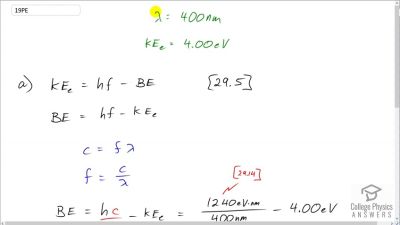 19PE
λ = 400nm
KEe = 4.00eV
a) KEe = hf - BE [29.5]
BE = hf - KEe
c = fλ
f = c/λ
[29.14]
BE = hc - KEe = 1240eV·nm/400nm - 4.00eV
College Physics
ANSWERS